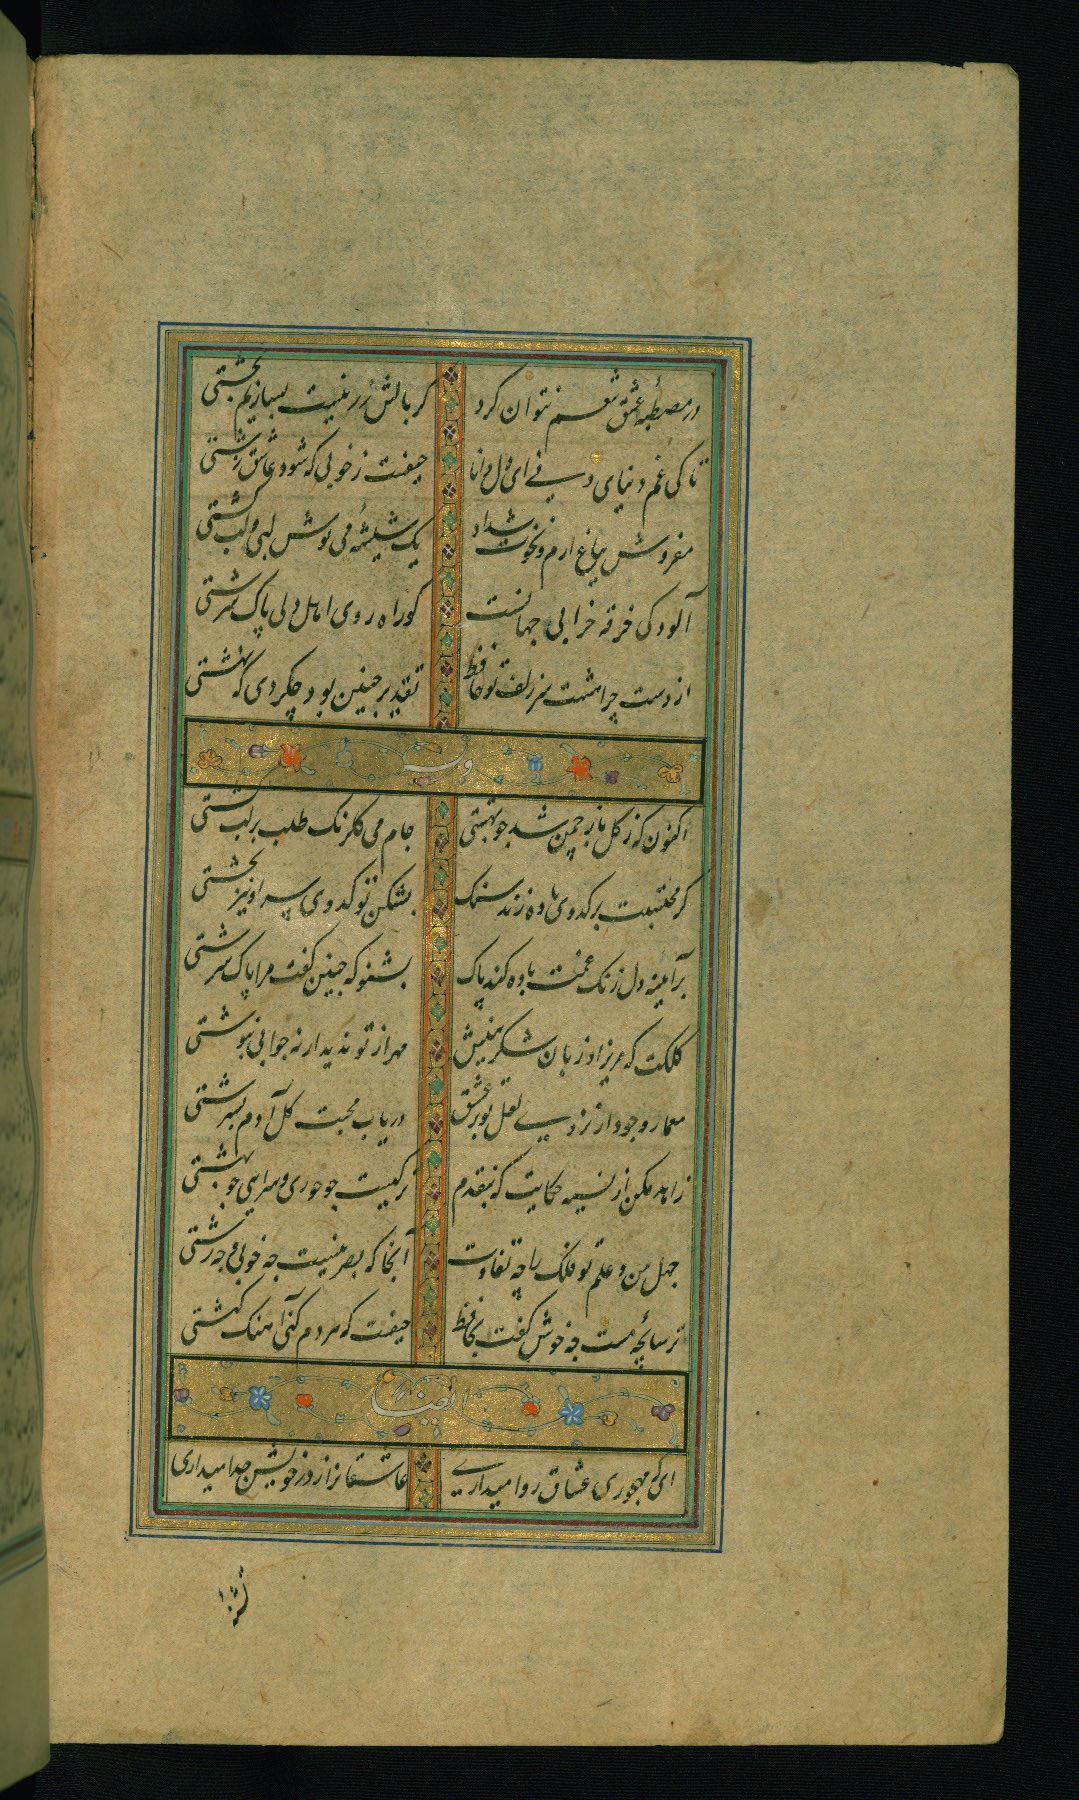 در مصطبهٔ عشق تنعم نتوان کرد کر بالش زر نیست بسازیم بخشتی
تا کی غم دنیای دنی ای دل دانا حیفست ز خوبی که شود عاشق زشتی
مفروش بباغ ارم و نخوت شداد یک شیشهٔ می نوش لبی و لب کشتی
آلودکی خرقه خرابی جهانست کو راه روی اهل دلی پاک سرشتی
از دست چرا هشت سر زلف تو حافظ تقدیر چنین بود چکردی که نهشتی
وله
اکنون که ز کل باز چمن شد چو بهشتی جام می کلرنک طلب بر لب کشتی
کر محتسبت بر کدوی باده زند سنک بشکن تو کدوی سر او نیز بخشتی
بر آئینه دل زنک غمت باده کند پاک بشنو که چنین کفت مرا پاک سرشتی
کلکت که مریزاد زبان شکرینش مهر از تو ندید ار نه جوابی بنوشتی
معمار وجود ار نزدی نقل تو بر عشق در یاب محبت کل آدم بسرشتی
زاهد مکن از نسیه حکایت که بنقدم ترکیست چو حوری و سرایی چو بهشتی
جهل من و علم تو فلک را چه تفاوت آنجا که بصر نیست چه خوبی و چه زشتی
ترسابچه مست چه خوش کفت بحافظ حیفست که مردم کنی آهنک کنشتی
ایضا
ای که مهجوری عشاق روا میداری عاشقانرا ز در خویش جدا میداری
تشنه